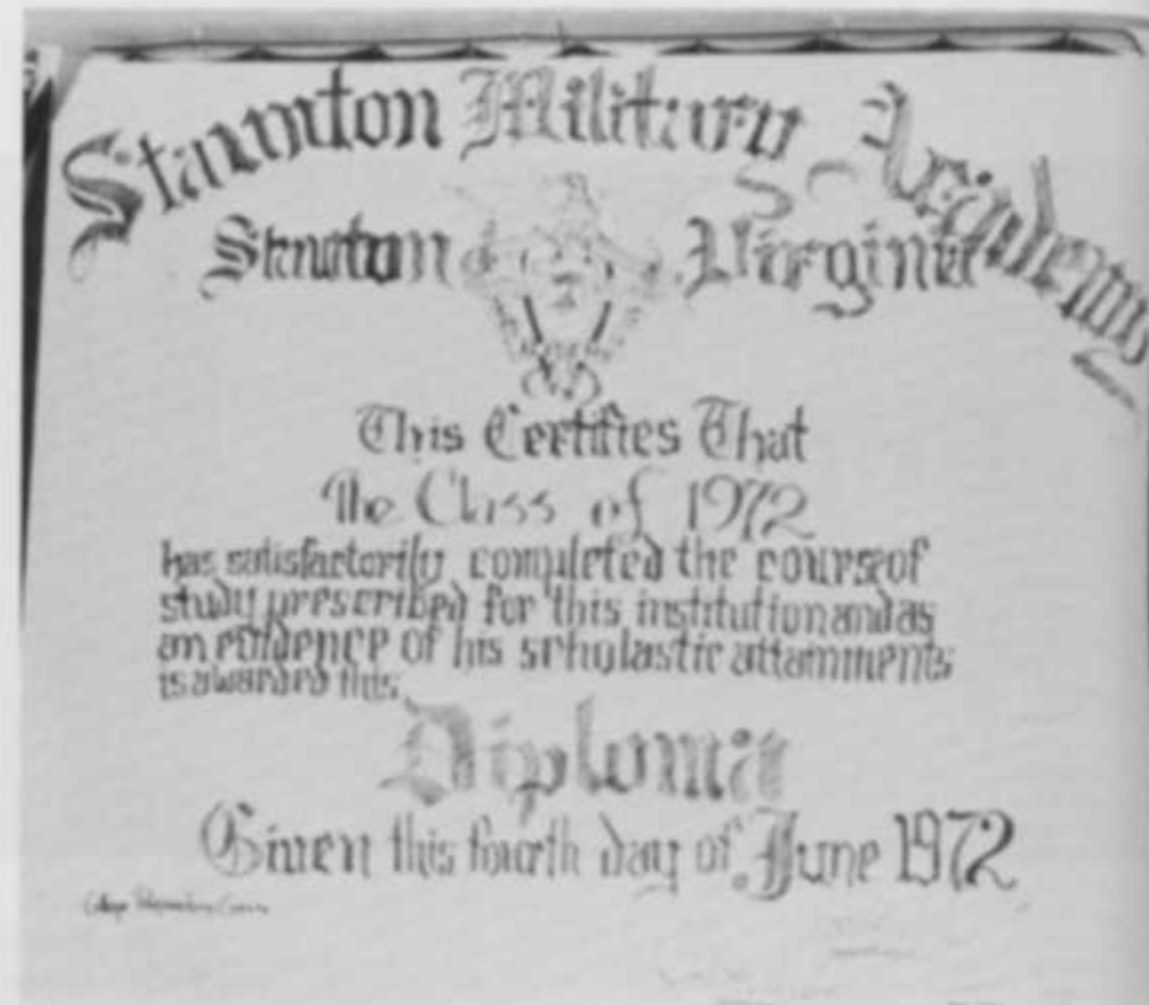 Staunton Military Academy
Staunton Virginia
This Certifies That
The Class of 1972
has satisfactorily completed the course of
study prescribed for this institution and as
an evidence of his scholastic attainments
is awarded this
Diploma
Given this fourth day of June 1972
College Preparatory Course